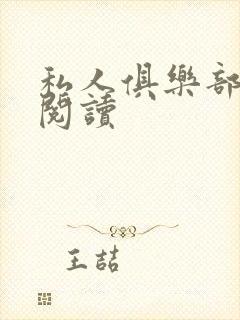 私人俱樂部
閱讀
王喆